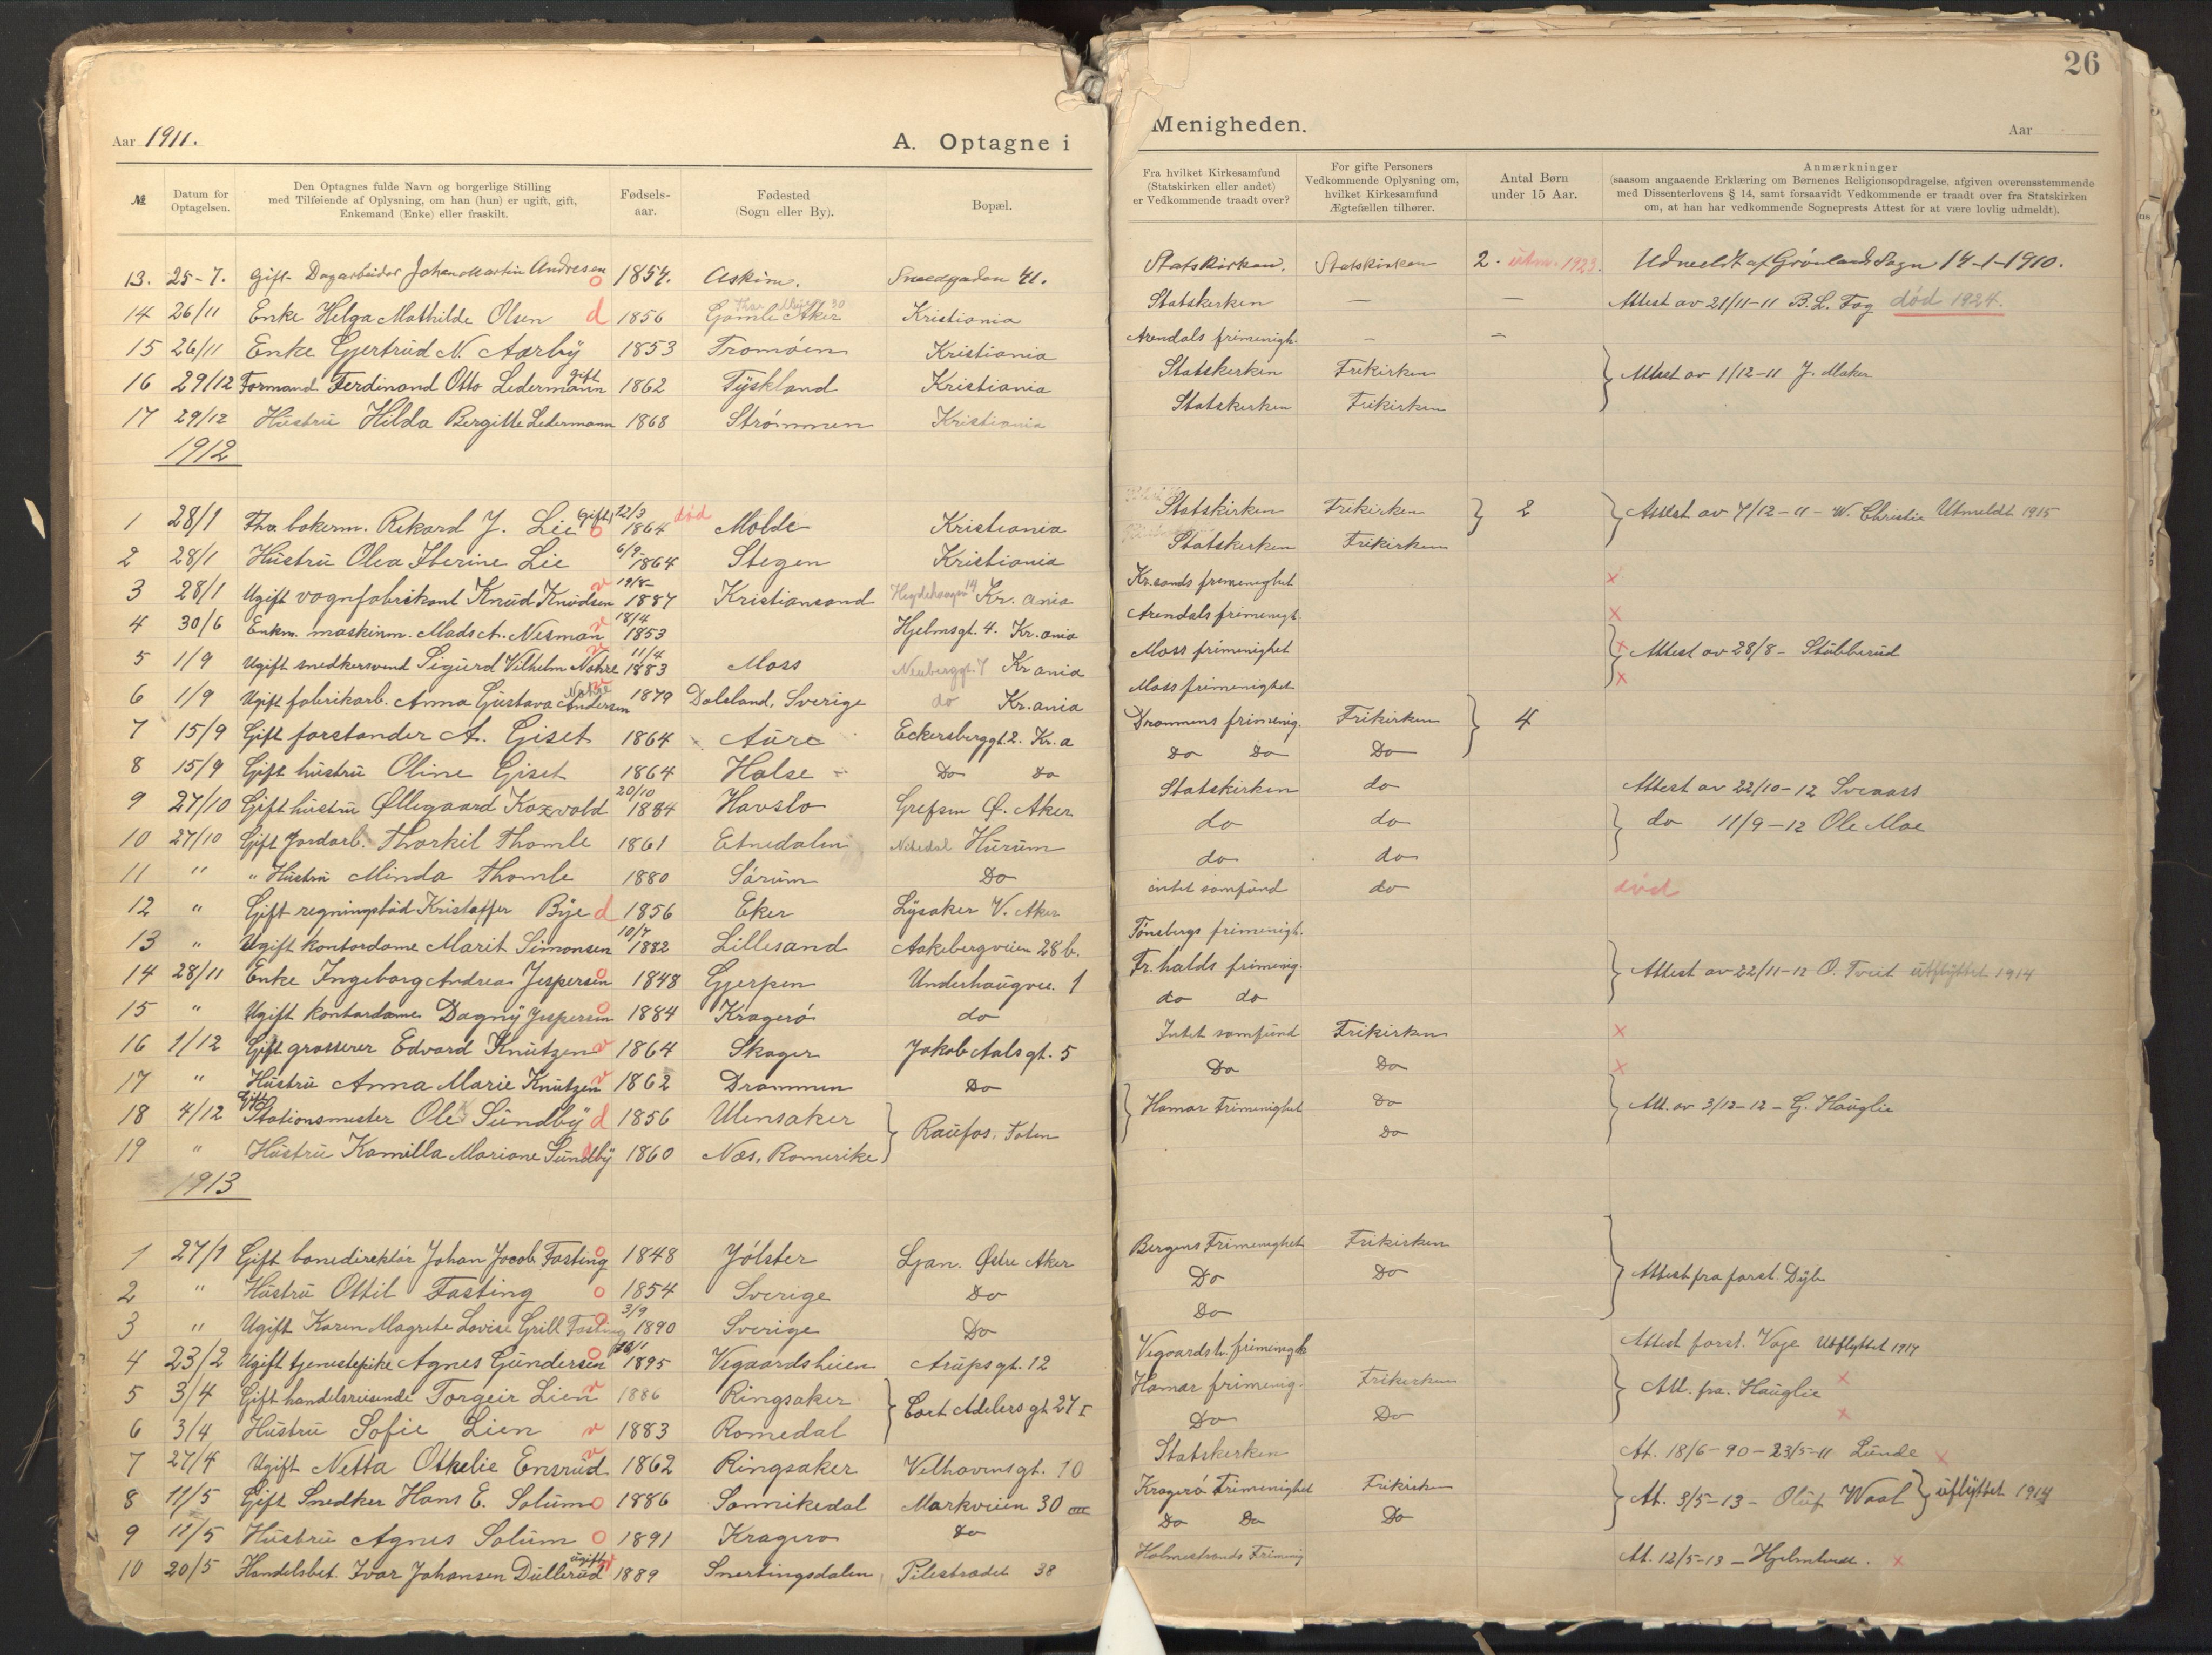 26
Aar 1911.
A. Optagne i Menigheden.
Aar
№
Datum for Optagelsen.
Den Optagnes fulde Navn og borgerlige Stilling med Tilføiende af Oplysning, om han (hun) er ugift, gift, Enkemand (Enke) eller fraskilt.
Fødsels-aar.
Fødested (Sogn eller By).
Bopæl.
Fra hvilket Kirkesamfund (Statskirken eller andet) er Vedkommende traadt over?
For gifte Personers Vedkommende Oplysning om, hvilket Kirkesamfund Ægtefællen tilhører.
Antal Børn under 15 Aar.
Anmærkninger
(saasom angaaende Erklæring om Børnenes Religionsopdragelse, afgiven overensstemmende med Dissenterlovens § 14, samt forsaavidt Vedkommende er traadt over fra Statskirken om, at han har vedkommende Sogneprests Attest for at være lovlig udmeldt).
13. 25-7. Gift Dagarbeider Johan Martin Andresen o 1854. Askim. 41. Statskirken. Statskirken 2. utm. 1923. Udmeldt af Grønlands Sogn 14-1-1910.
14 26/11 Enke Helga Mathilde Olsen d 1856 Gamle Aker Kristiania Statskirken — — Attest av 21/11-11 B. L. Fog død 1924.
15 26/11 Enke Gjertrud N. Aarby 1853 Tromøen Kristiania Arendals frimenigh. — —
16 29/12 Formand Ferdinand Otto Ledermann gift 1862 Tyskland Kristiania Statskirken Frikirken } Attest av 1/12-11 J. Maker
17 29/12 Hustru Hilda Bergitte Ledermann 1868 Strømmen Kristiania Statskirken Frikirken
1912
1 28/1 Fhv. bakerm. Rikard J. Lie (Gift) o 22/3 1864 død Molde Kristiania Statskirken Frikirken } 2 } Attest av 7/12-11 - W. Christie Utmeldt 1915
2 28/1 Hustru Olea Iberine Lie 6/9 1864 Stegen Kristiania Statskirken Frikirken
3 28/1 Ugift vognfabrikant Knud Knudsen v 19/8- 1887 Kristiansand Hegdehaugen 14 Kr. ania Kr.sands frimenighet x
4 30/6 Enkm. maskinm. Mads A. Nesman v 18/4 1853 Hjelmsgt. 4. Kr.ania Arendals frimenigt. x
5 1/9 Ugift snedkersvend Sigurd Vilhelm Nohre v 11/4 1883 Moss Neuberggt. 7 Kr ania Moss frimenighet } x Attest av 28/8 - Stubberud
6 1/9 Ugift fabrikarb. Anna Gustava Andersen Nohre v 1879 Dalsland, Sverige do Kr.ania Moss frimenighet x
7 15/9 Gift forstander A. Giset 1864 Aure Eckersberggt 2. Kr.a Drammens frimenig. Frikirken } 4
8 15/9 Gift hustru Oline Giset 1864 Halse Do Do Do Do Do
9 27/10 Gift hustru Øllegaard Kaxvold 20/10 1884 Havslo Grefsen Ø. Aker Statskirken do Attest av 22/10-12 Sveaass
10 27/10 Gift Jordarb. Thorkil Thomle 1861 Etnedalen Nitedal Hurum do do } do 11/9-12 Ole Moe
11 " " Hustru Minda Thomle 1880 Sørum Do do do
12 " Gift regningsbud Kristoffer Bye d 1856 Eker Lysaker V. Aker intet samfund do død
13 " Ugift kontordame Marit Simonsen 10/7 1882 Lillesand Aakebergveien 28 b. Tønsbergs frimenigh.
14 28/11 Enke Ingeborg Andrea Jespersen o 1848 Gjerpen Underhaugvei. 1 Fr.halds frimenig. } Attest av 22/11-12 O. Tveit utflyttet 1914
15 " Ugift kontordame Dagny Jespersen o 1884 Kragerø do do do
16 1/12 Gift grosserer Edvard Knutzen v 1864 Skager Jakob Aalsgt. 5 Intet samfund Frikirken x
17 " Hustru Anna Marie Knutzen v 1862 Drammen Do Do Do x
18 4/12 Gift Stationsmester Ole Sundby d 1856 Ulensaker } Raufos, Toten } Hamar Frimenighet Do } Att. av 3/12-12 - G. Hauglie
19 " Hustru Kamilla Mariane Sundby d 1860 Næs, Romerike Do
1913
1 27/1 Gift banedirektør Johan Jacob Fasting o 1848 Jølster Ljan. Østre Aker Bergens Frimenighet Frikirken } Attest fra forst. Dyb
2 " Hustru Ottil Fasting o 1854 Sverige Do Do Do
3 " Ugift Karen Magrete Lovise Grill Fasting o 3/9 1890 Sverige Do Do
4 23/2 Ugift tjenestepike Agnes Gundersen o 1895 Vegaardsheien Arupsgt. 12 Vegaardsh. frimenigh. Attest forst. Vaje Utflyttet 1917
5 3/4 Gift handelsreisende Torgeir Lien v 1886 Ringsaker } Cort Adelers gt 27 I Hamar frimenig. Frikirken } Att. fra. Hauglie x
6 3/4 Hustru Sofie Lien v 1883 Romedal Do Do x
7 27/4 Ugift Netta Othelie Ensrud v 1862 Ringsaker Velhavensgt. 10 Statskirken At. 18/6-90-23/5-11 Lunde x
8 11/5 Gift Snedker Hans E. Solum o 1886 Sannikedal Markveien 30 III Kragerø Frimenighet Frikirken } At. 3/5-13 - Oluf Waal } utflyttet 1914
9 11/5 Hustru Agnes Solum o 1891 Kragerø Do Do Do Do
10 20/5 Handelsbet. Ivar Johansen Dullerud ugift v 1889 Snertingsdalen Pilestrædet 38 Holmestrands Frimenig At. 12/5-13 - x